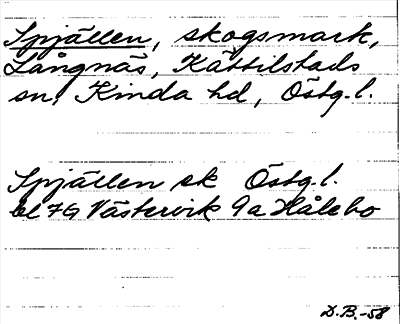 Spjällen, skogsmark,
Långnäs, Kättilstads
sn, Kinda hd, Östg.l.
Spjällen sk Östg.l.
bl 7G Västervik 9a Hålebo
D.B.-58